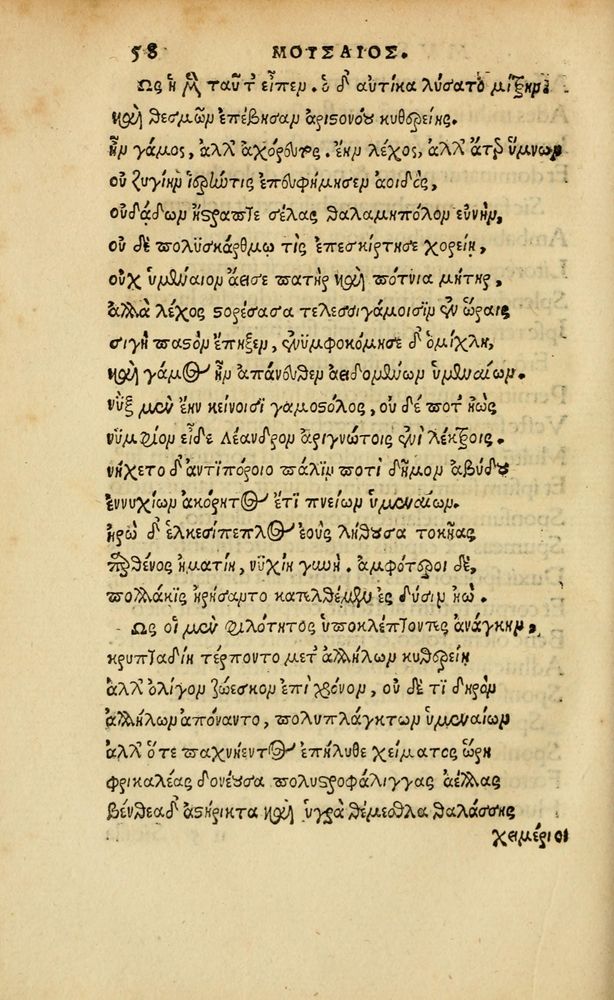 58 ΜΟΥΣΑΙΟΣ.
Ως ἡ μὲν ταῦτ' εἶπεν. ὁ δ' αὐτίκα λύσατο μίτρην.
καὶ θεσμῶν ἐπέβησαν ἀριστονόου κυθερείης.
ἦν γάμος, ἀλλ' ἀχόρευτος. ἔην λέχος, ἀλλ' ἄτερ ὕμνων
οὐ ζυγίην ἱερὴν τις ἐπευφήμησεν ἀοιδὸς,
οὐ δάδων ἤστραπτε σέλας θαλαμηπόλον εὐνὴν,
οὐ δὲ πολυσκάρθμῳ τὶς ἐπεσκίρτησε χορείῃ,
οὐχ ὑμέναιον ἄεισε πατὴρ καὶ πότνια μήτηρ,
ἀλλὰ λέχος στορέσασα τελεσσιγάμοισιν ἐν ὥραις
σιγὴ παστὸν ἔπηξεν, ἐνυμφοκόμησε δ' ὁμίχλη,
καὶ γάμος ἦν ἀπάνευθεν ἀειδομένων ὑμεναίων.
νὺξ μὲν ἔην κείνοισι γαμοστόλος, οὐ δέ ποτ' ἠὼς
νύμφιον εἶδε Λέανδρον ἀριγνώτοις ἐνὶ λέκτροις.
νήχετο δ' ἀντιπόροιο πάλιν ποτὶ δῆμον ἀβύδου
ἐννυχίων ἀκόρητος ἔτι πνείων ὑμεναίων.
ἡρὼ δ' ἑλκεσίπεπλος ἑοὺς λήθουσα τοκῆας
παρθένος ἠματίη, νυχίη γυνή. ἀμφότεροι δὲ,
πολλάκις ἠρήσαντο κατελθέμεν ἐς δύσιν ἠῶ.
Ως οἱ μὲν φιλότητος ὑποκλέπτοντες ἀνάγκην,
κρυπταδίῃ τέρποντο μετ' ἀλλήλων κυθερείῃ
ἀλλ' ὀλίγον ζώεσκον ἐπὶ χρόνον, οὐ δέ τι δηρὸν
ἀλλήλων ἀπόναντο, πολυπλάγκτων ὑμεναίων
ἀλλ' ὅτε παχνήεντος ἐπήλυθε χείματος ὥρη
φρικαλέας δονέουσα πολυστροφάλιγγας ἀέλλας
βένθεα δ' ἀστήρικτα καὶ ὑγρὰ θέμεθλα θαλάσσης
χειμέριοι